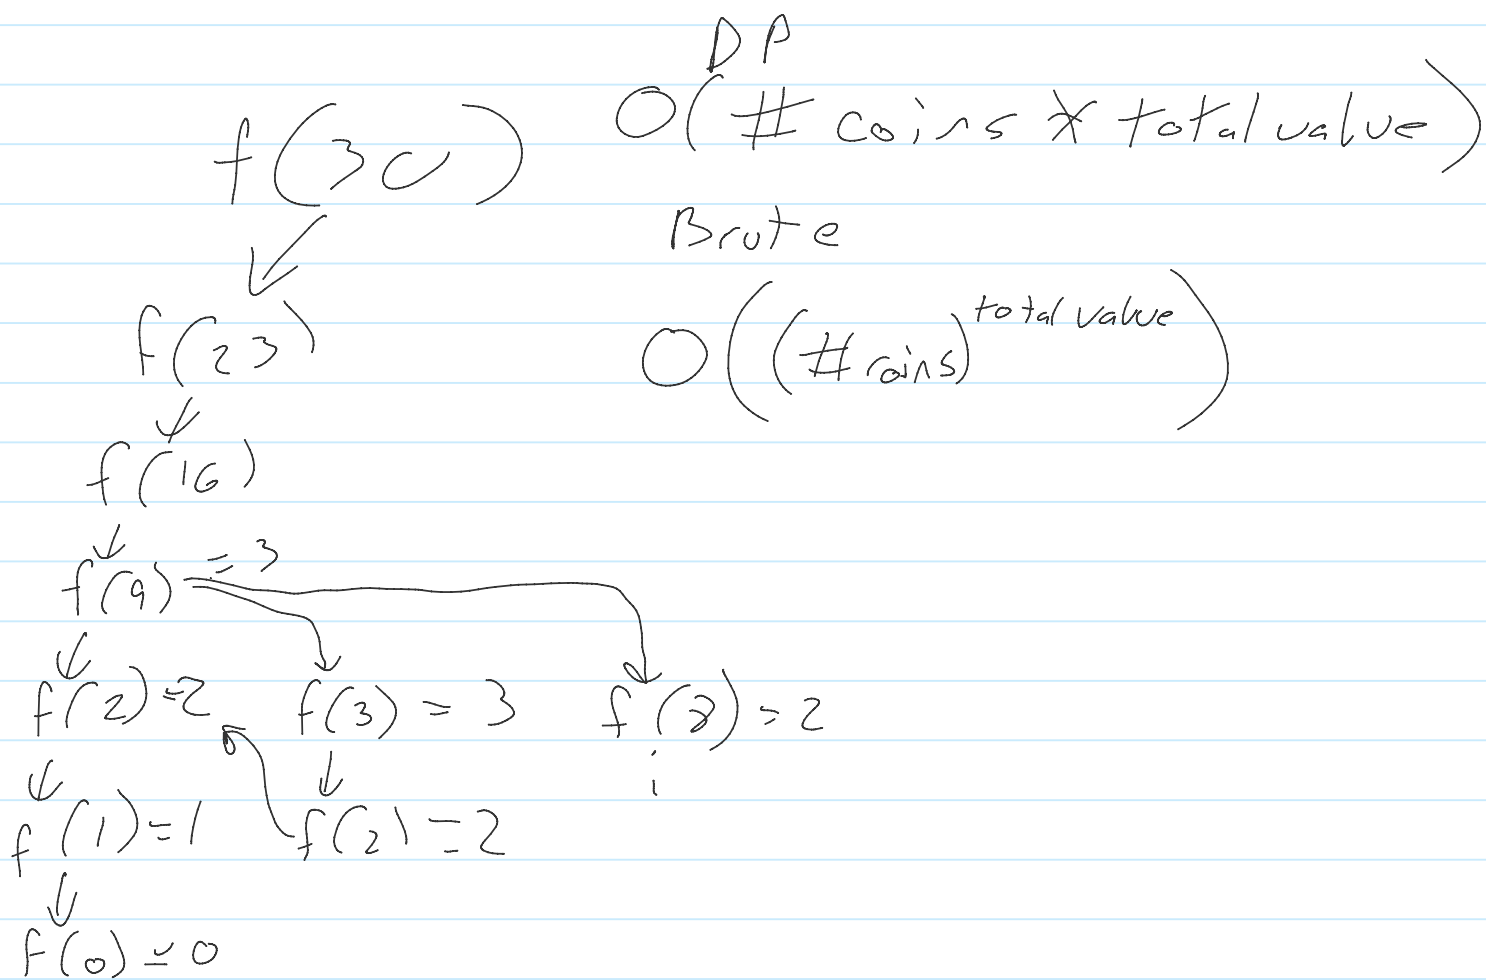 DP
O(# coins * total value)
f(30)
Brute
O((# coins)^total value)
f(23)
f(16)
f(9) = 3
f(2) = 2 f(3) = 3 f(8) = 2
f(1) = 1 f(2) = 2
f(0) = 0